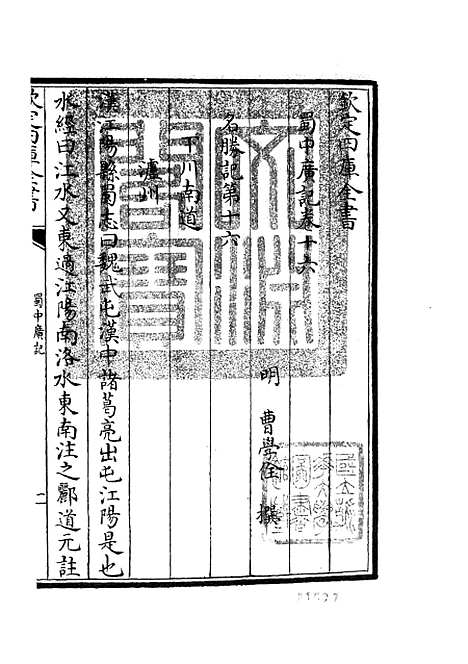 欽定四庫全書
蜀中廣記卷十六
明 曹學佺 撰
名勝記第十六
下川南道
瀘州
漢江陽縣蜀志曰魏武屯漢中諸葛亮出屯江陽是也
水經曰江水又東過江陽南洛水東南注之酈道元註
欽定四庫全書
蜀中廣記